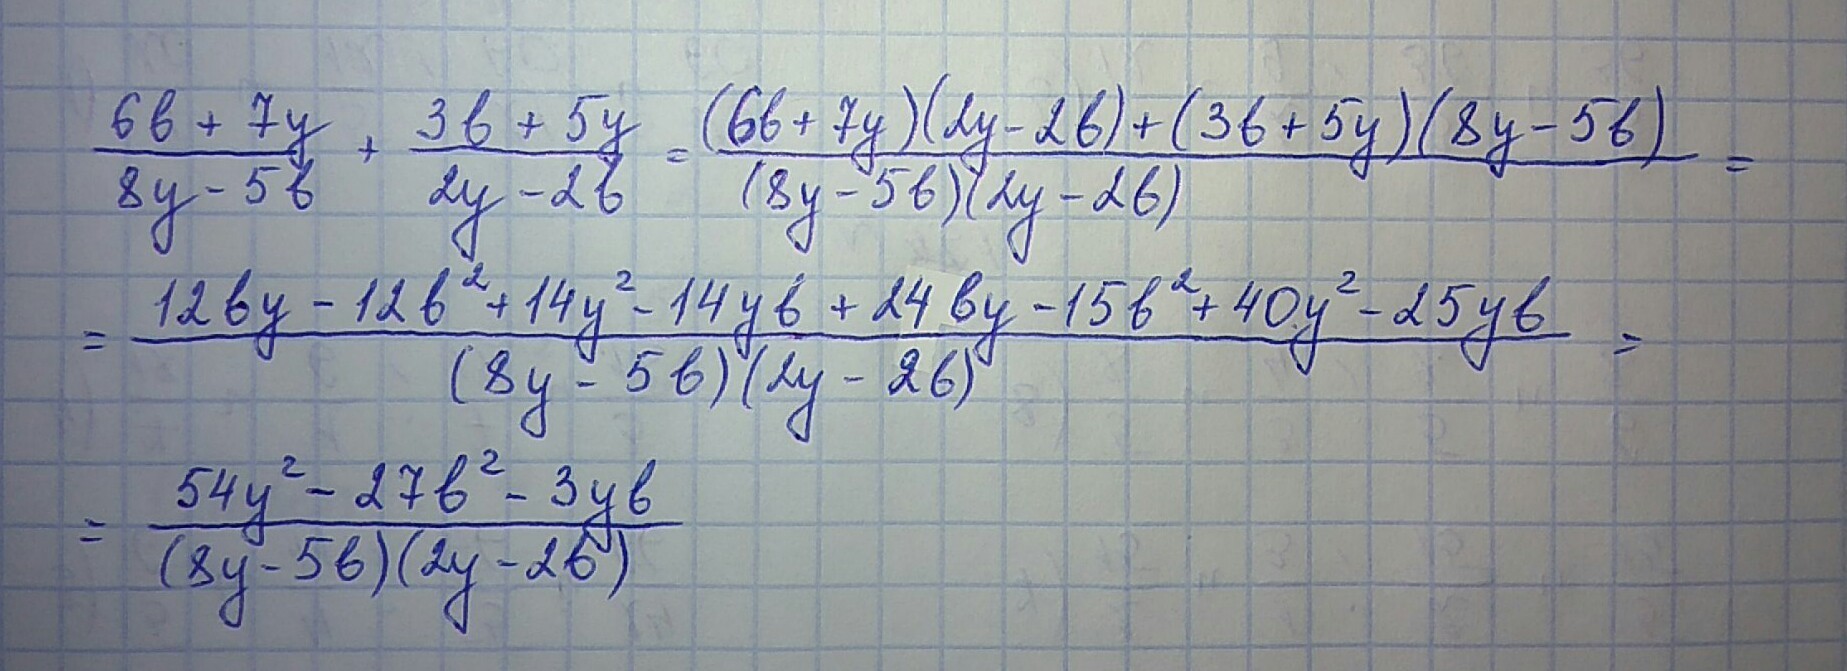 (6b + 7y)/(8y - 5b) + (3b + 5y)/(2y - 2b) = ((6b + 7y)(2y - 2b) + (3b + 5y)(8y - 5b))/((8y - 5b)(2y - 2b)) =
= (12by - 12b² + 14y² - 14yb + 24by - 15b² + 40y² - 25yb)/((8y - 5b)(2y - 2b)) =
= (54y² - 27b² - 3yb)/((8y - 5b)(2y - 2b))